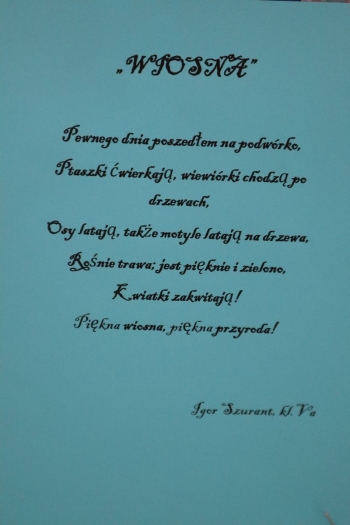 „WIOSNA”
Pewnego dnia poszedłem na podwórko,
Ptaszki Ćwierkają, wiewiórki chodzą po
drzewach,
Osy latają, także motyle latają na drzewa,
Rośnie trawa; jest pięknie i zielono,
Kwiatki zakwitają!
Piękna wiosna, piękna przyroda!
Igor Szurant, kl. Va